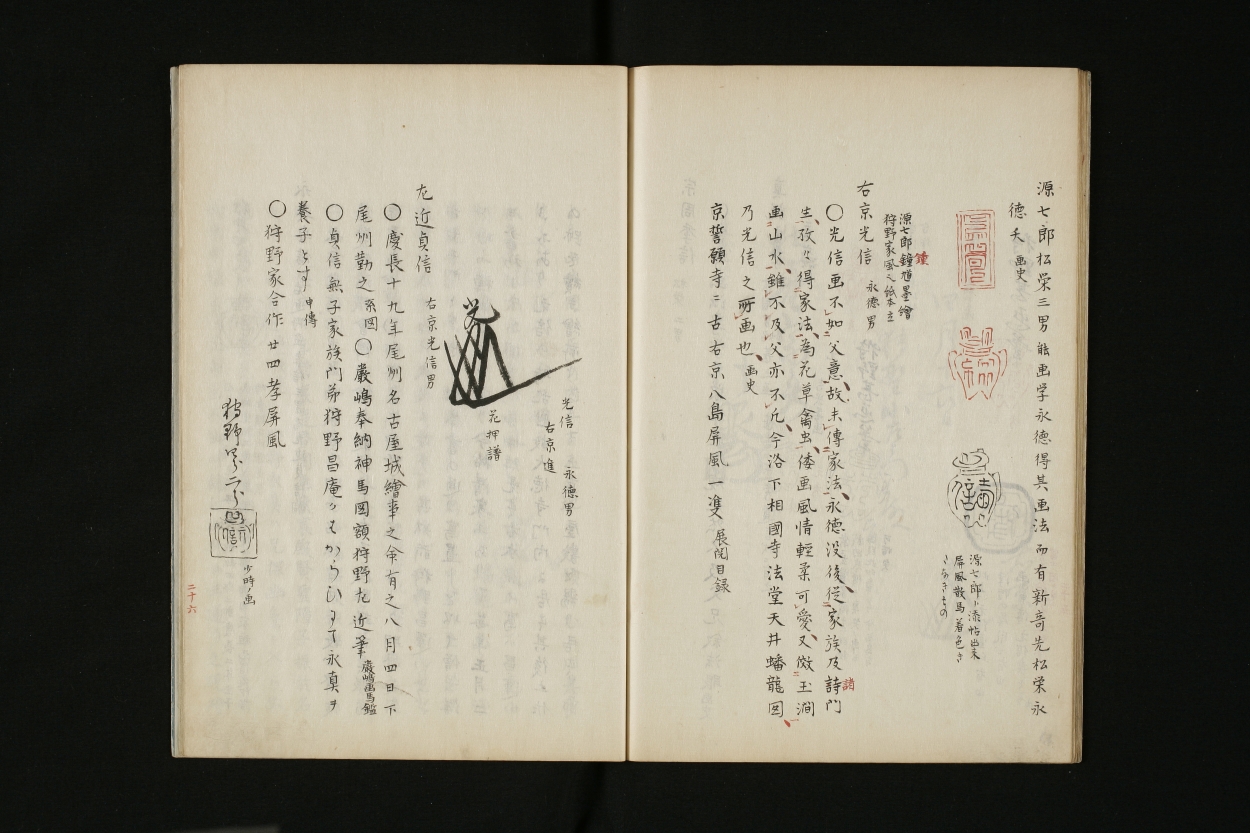 源七郎松栄三男 能画学永徳得其画法而有新奇先松栄永
徳夭 画史
源七郎ト添帖出来
屏風散馬着色き
源七郎鐘馗墨繪
鍾
狩野家風之紙本立
右京光信 永徳男
〇光信画不如父意故未傳家法永徳没後従家族及詩門
諸
生孜々得家法為花草禽虫倭画風情軽柔可愛又倣玉澗
画山水雖不及父亦不凡今洛下相國寺法堂天井蟠龍図
乃光信之所画也 画史
京誓願寺ニ古右京八島屏風一雙 展閲目録
光信 永徳男
右京進
花押譜
左近貞信 右京光信男
〇慶長十九年尾州名古屋城繪事之命有之八月四日下
尾州勤之 系図 〇嚴嶋奉納神馬圖額狩野左近筆 嚴嶋画馬鑑
〇貞信無子家族門弟狩野昌庵々はからひにて永真ヲ
養子とす 申傳
〇狩野家合作 廿四孝屏風
狩野
少時ノ画
二十六